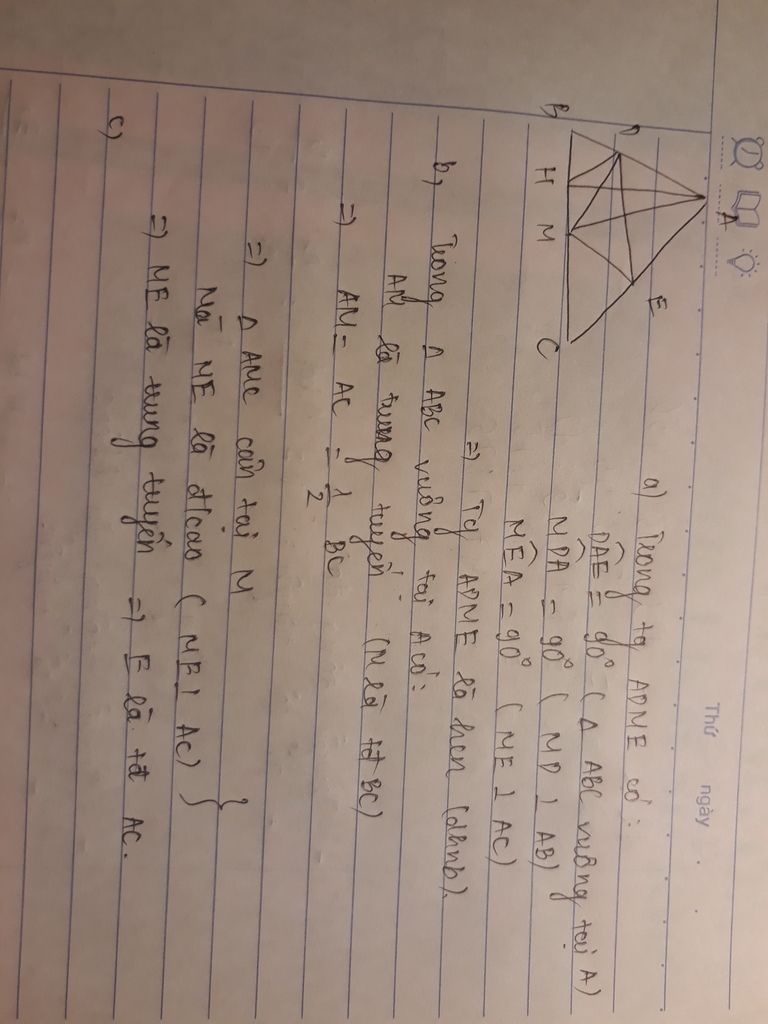 Thứ
ngày
A
D
E
B
H
M
C
a) Trong tg ADME có:
DAE = 90° (Δ ABC vuông tại A)
MDA = 90° (MD ⊥ AB)
MEA = 90° (ME ⊥ AC)
=> Tg ADME là hcn (dhnb).
b, Trong Δ ABC vuông tại A có:
AM là trung tuyến (M là tđ BC)
=> AM = AC = 1/2 BC
=> Δ AMC cân tại M
Mà ME là đ/cao (ME ⊥ AC) }
=> ME là trung tuyến => E là tđ AC.
c)